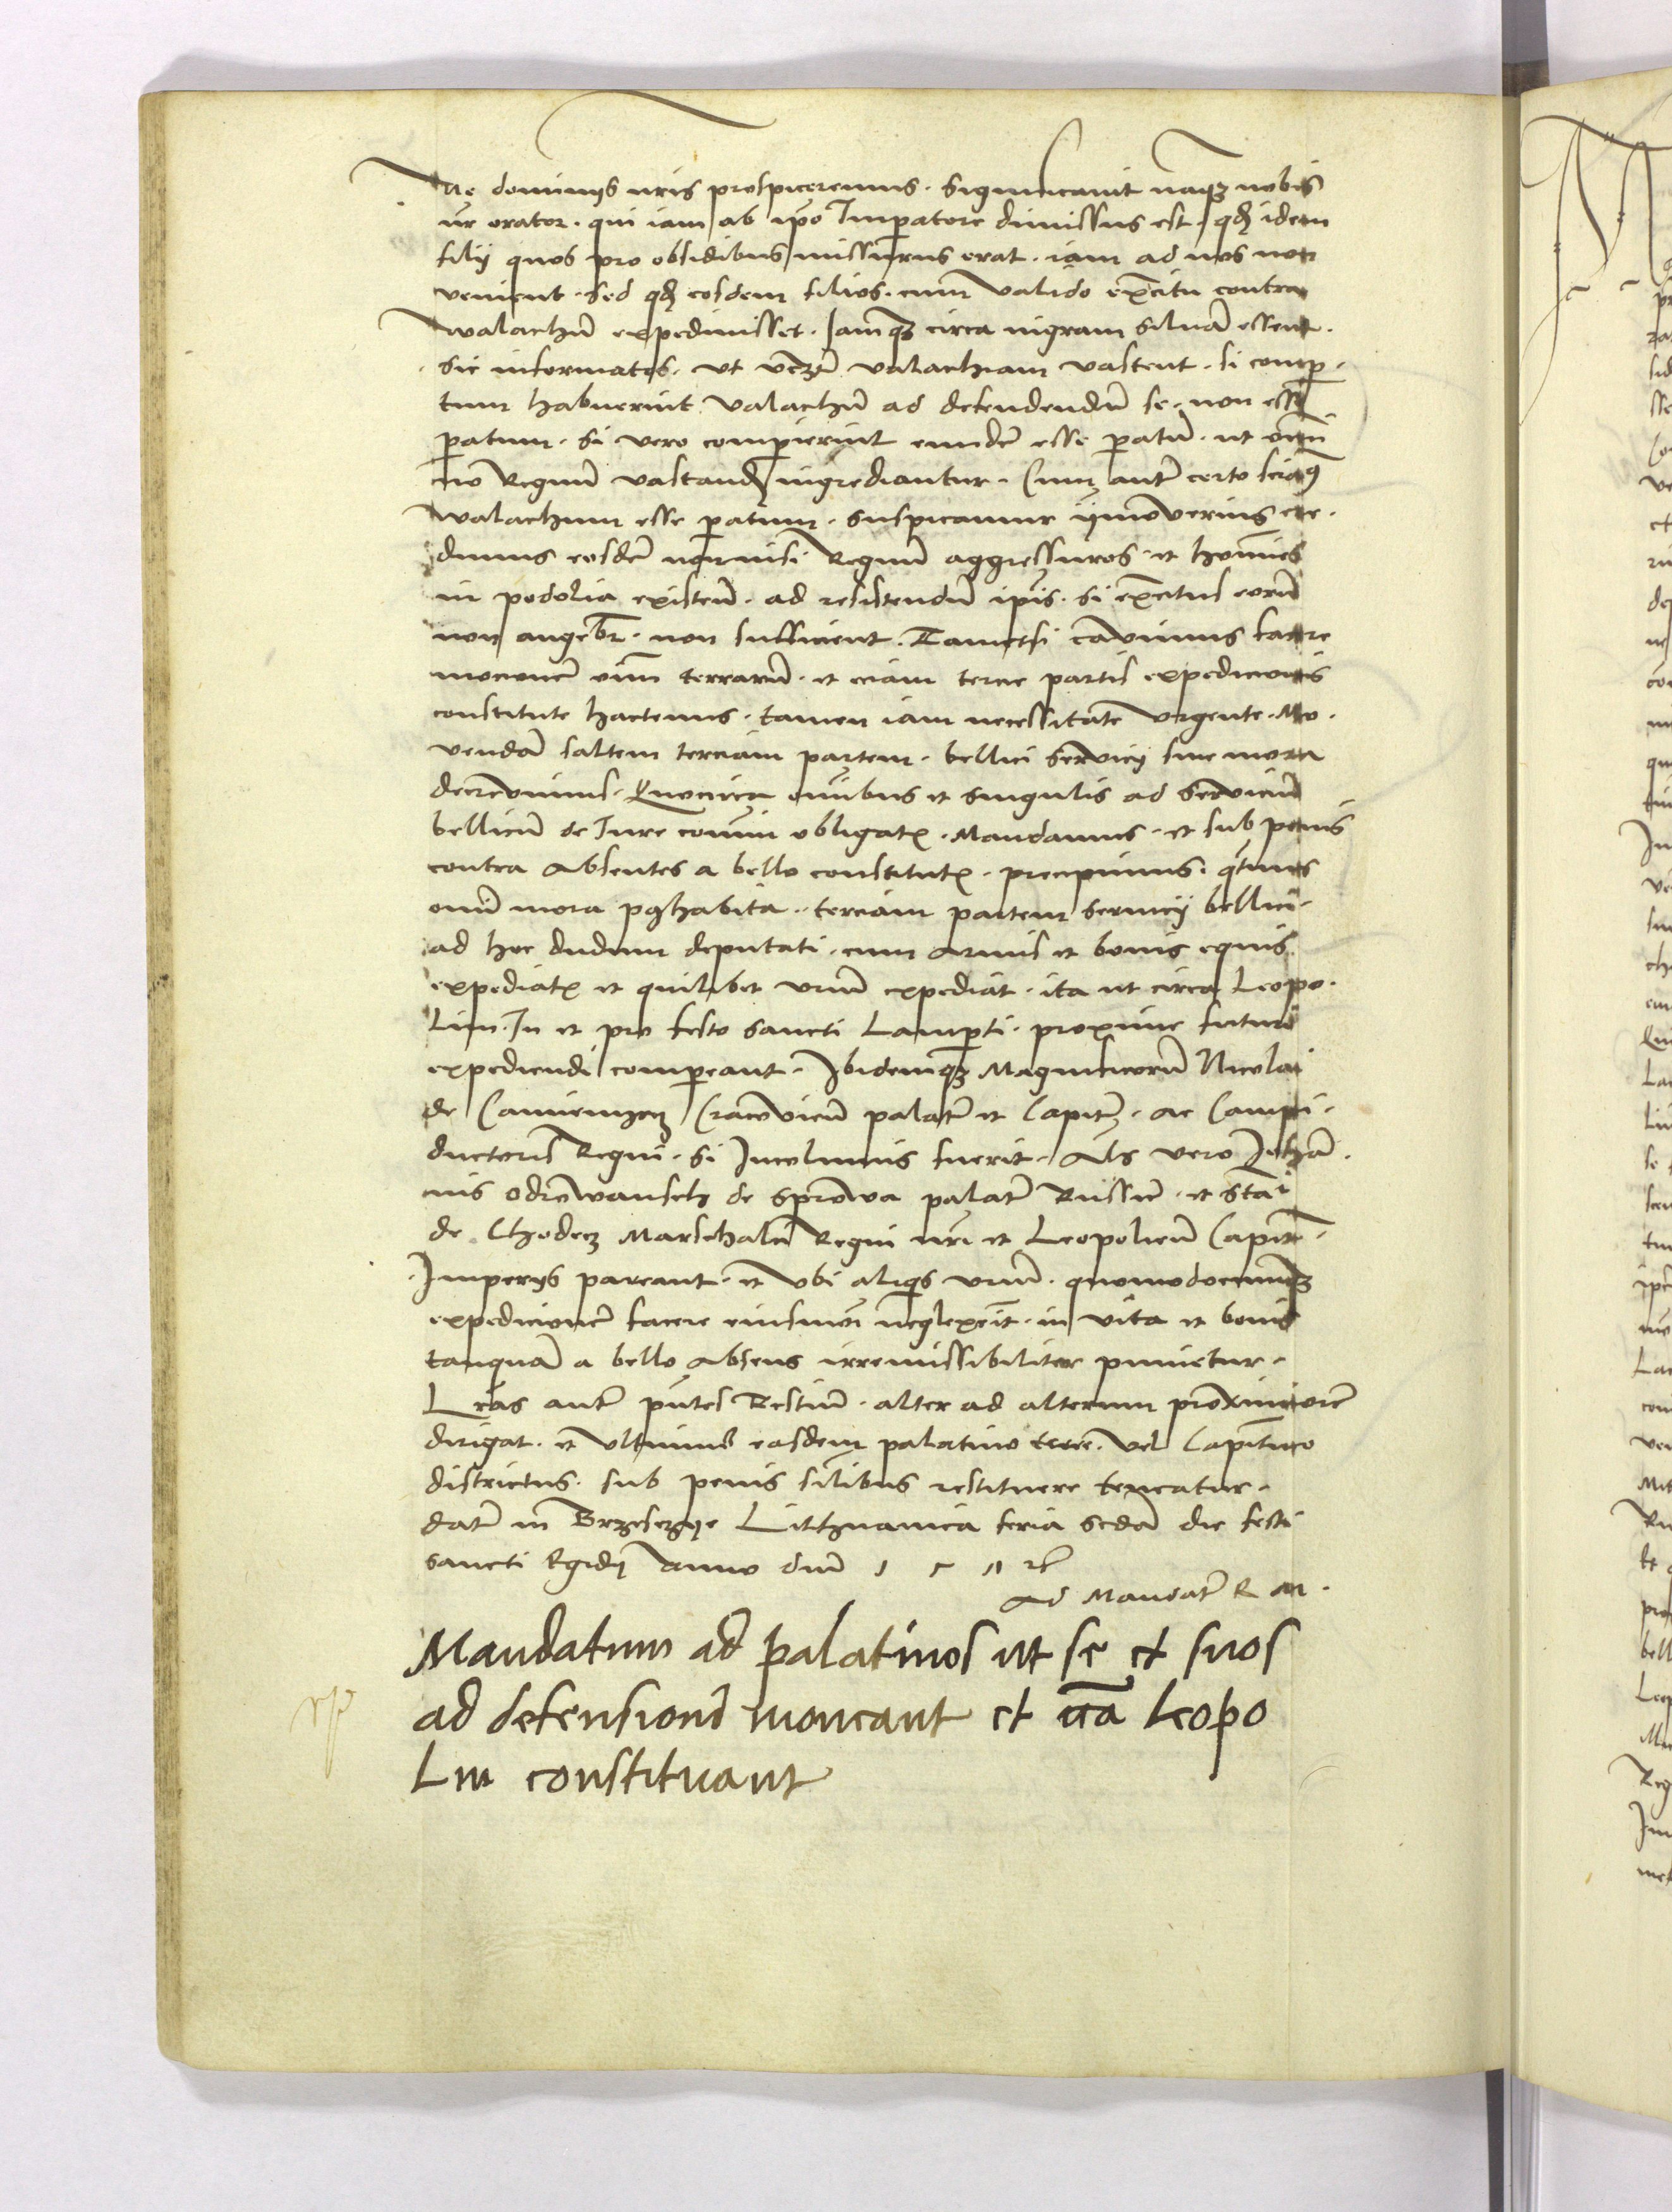 ac dominijs nris prospiceremus. Significauit namqz nobis
nr orator. qui iam ab ipo Imperatore dimissus est. qd idem
filij quos pro obsidibus missurus erat. iam ad nos non
venient. Sed qd eosdem filios. cum valido exercitu contra
walachũ expediuisset. Iamqz circa nigram siluã essent.
Sic informatos. vt valachiam vastent. si comper
tum habuerint valachũ ad defendendũ se. non esse
paratum. Si vero compererint eundẽ esse paratũ. ut omni
no Regnũ vastandũ ingrediantur. Cum autẽ certo sciam9
walachum esse paratum. suspicamur ijmo verius cre
dimus eosdẽ non nisi Regnũ aggressuros. et homines
in podolia existeñ. ad resistendũ ipis. si exercitus eorũ
non augebr. non sufficient. Tametsi cauimus facere
mocionẽ oim terrarũ. et eciam tercie partis expedicionis
constitute hactenus. tamen iam necessitate vrgente. Mo
uendã saltem terciam partem. bellici seruicij sine mora
decreuimus. Quocirca omibus et singulis ad seruiciũ
bellicũ de Iure comuni obligatis. Mandamus. et sub penis
contra absentes a bello constitutis. precipimus. qtinus
omi mora posthabita. terciam partem seruicij bellici
ad hoc dudum deputati. cum armis et bonis equis
expediatis et quilibet vrum expediat. ita ut circa Leopo
lim. In et pro festo Sancti Lamperti. proxime futuro
expediendi compareant. Ibidemqz Magnificorũ Nicolai
de Camienyecz Cracouieñ palatini et Capitanei. ac Campi
ductoris Regni. Si Incolumis fuerit. Als vero Iohan
nis odrowansch de Sprowa palatini Russie. et Sta
de Chodecz Marschalci Regni nri et Leopolieñ Capitanei
Imperijs pareant. et vbi aliqis vrum. quomodocumqz
expedicionẽ facere eiusmodi neglexerit. in vita et bonis
tanquã a bello absens irremissibiliter punietur.
Lras autẽ pntes Restium. alter ad alterum proximiorẽ
dirigat. et vltimus easdem palatino terre. vel Capitaneo
districtus. sub penis silibus restituere teneatur.
datũ in Brzesczye Litthuanica feria Scdã die festi
Sancti Egidij Anno dni
Ad Mandatũ R M.
Mandatum ad palatinos ut se et suos
ad defensionẽ moueant et una Leopo
Lim constituant